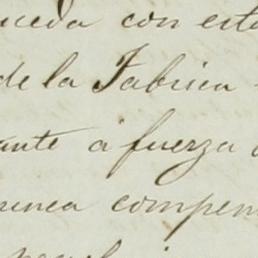 ceda con est
de la Fabrica
ante a fuerza
nunca compen